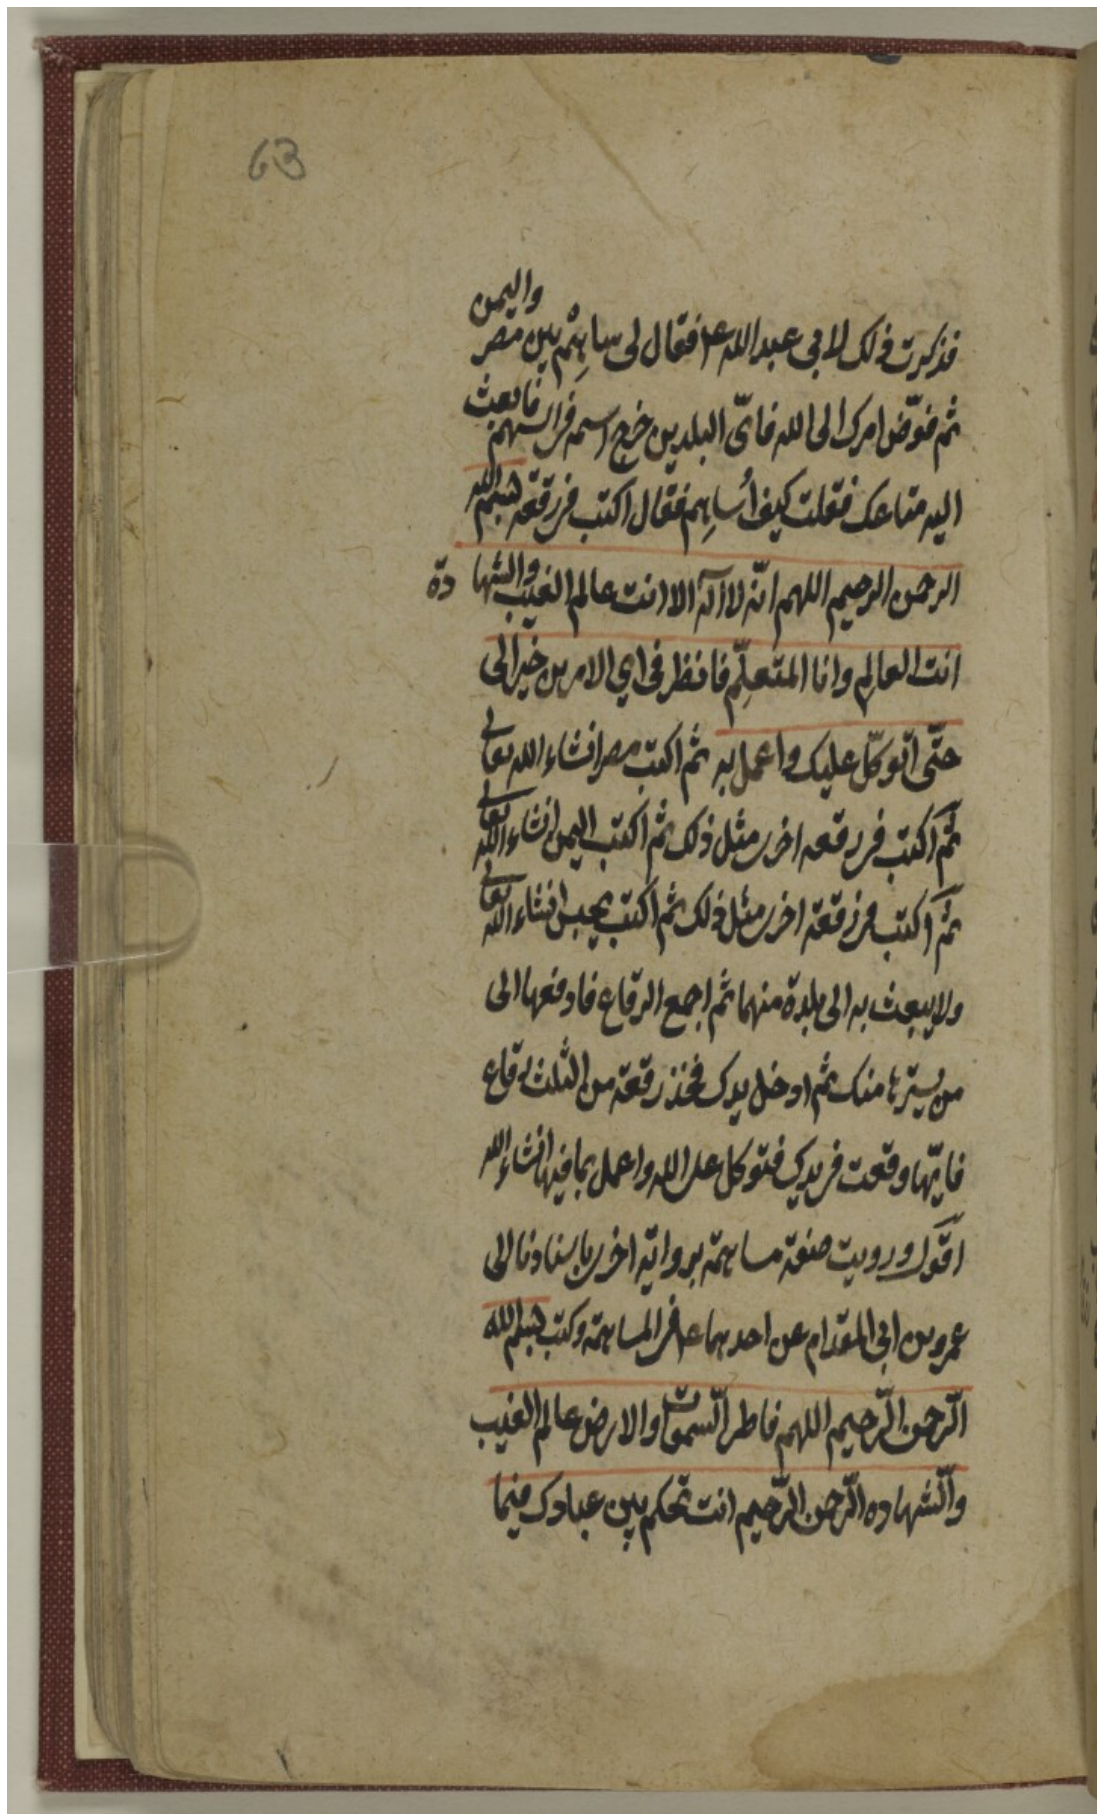 63
فذكرت ذلك لابي عبد الله ع م فقال لي ساهِمْ بين مصر واليمن
ثم فوّض امرك الى الله فايّ البلدين خرج اسمه في السهم فابعث
اليه متاعك فقلت كيف أُساهِم فقال اكتب في رقعة بسم الله
الرحمن الرحيم اللهم انّه لا اله الا انت عالم الغيب والشهادة
انت العالم وانا المتعلّم فانظر في اي الامرين خير الى
حتّى اتوكّل عليك واعمل به ثم اكتب مصر انشاء الله تعالى
ثم اكتب في رقعه اخرى مثل ذلك ثم اكتب اليمن انشاء الله تعالى
ثم اكتب في رقعة اخرى مثل ذلك ثم اكتب يحبس انشاء الله تعالى
ولا يبعث به الى بلدة منهما ثم اجمع الرقاع فادفعها الى
من يسترها منك ثم ادخل يدك فخذ رقعة من الثلث رقاع
فايّها وقعت في يدك فتوكل على الله واعمل بما فيها انشاء الله
اقول ورويت صفة مساهمة برواية اخرى باسنادنا الى
عمرو بن ابي المقدام عن احدهما ع م في المساهمة وكتب بسم الله
الرّحمن الرّحيم اللهم فاطر السّموات والارض عالم الغيب
والشّهاده الرّحمن الرّحيم انت تحكم بين عبادك فيما